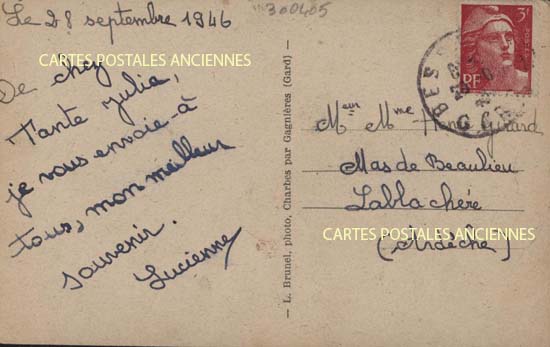 Le 28 septembre 1946
300405
CARTES POSTALES ANCIENNES
De chez
Tante Julia,
je vous envoie à
tous, mon meilleur
souvenir.
Lucienne
L. Brunel, photo, Charbes par Gagnières (Gard)
3F
RF
BES
Meur Mme Henri Girard
Mas de Beaulieu
Lablachère
CARTES POSTALES ANCIENNES
(Ardèche)